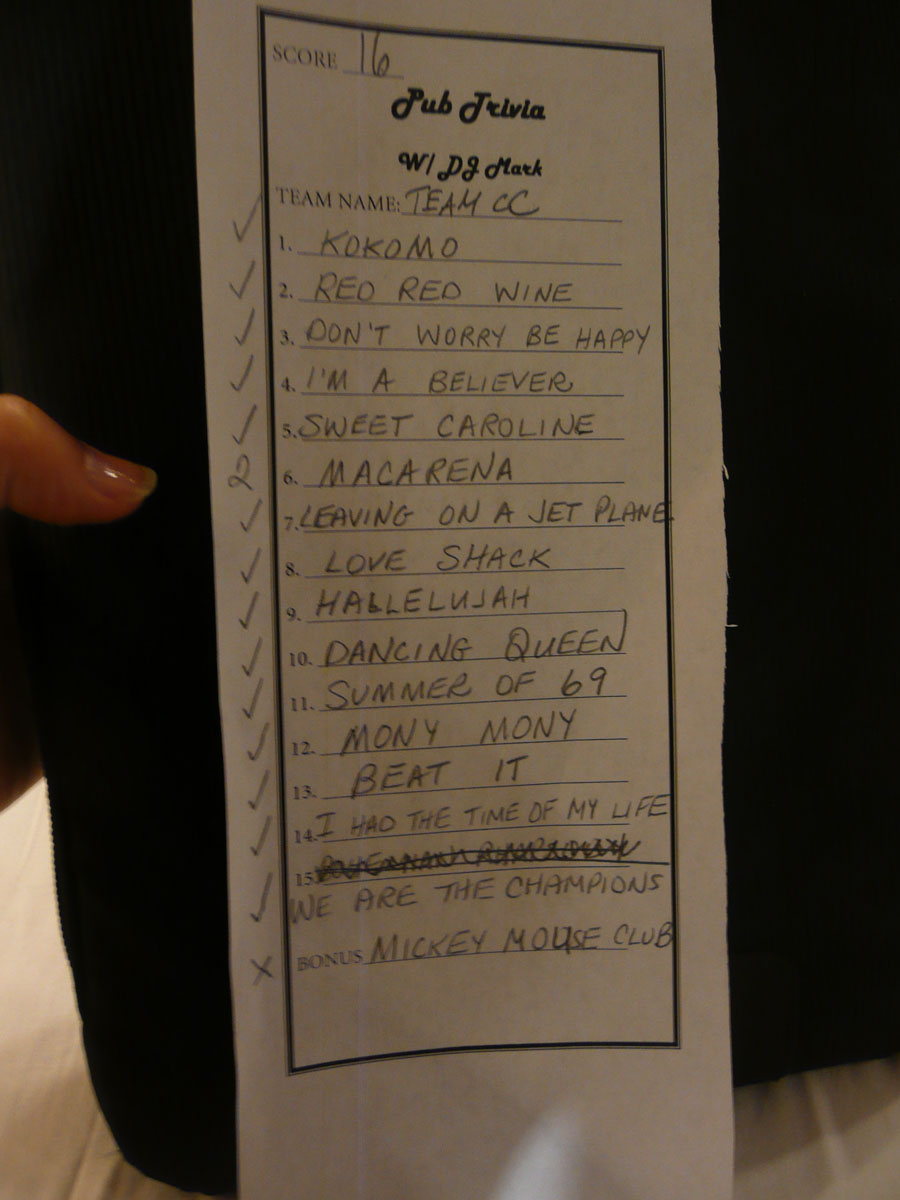 SCORE 16
Pub Trivia
W/ DJ Mark
TEAM NAME: TEAM CC
1. KOKOMO
2. RED RED WINE
3. DON'T WORRY BE HAPPY
4. I'M A BELIEVER
5. SWEET CAROLINE
2 6. MACARENA
7. LEAVING ON A JET PLANE
8. LOVE SHACK
9. HALLELUJAH
10. DANCING QUEEN
11. SUMMER OF 69
12. MONY MONY
13. BEAT IT
14. I HAD THE TIME OF MY LIFE
15
WE ARE THE CHAMPIONS
BONUS MICKEY MOUSE CLUB